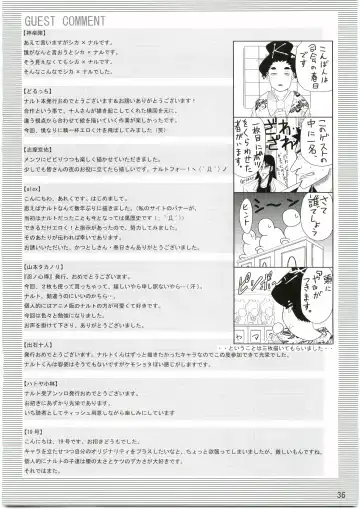 GUEST COMMENT
【神楽雛】
あえて言いますがシカ×ナルです。
誰がなんと言おうとシカ×ナルです。
そう見えなくてもシカ×ナルです。
そんなこんなでシカ×ナルでした。
【どるっち】
ナルト本発行おめでとうございます&お誘いありがとうございます!
合作という事で、十人さんが描き起こしてくれた構図を元に、
違う視点から合わせて絵を描いていく作業が楽しかったです。
今回、僕なりに精一杯エロく汁を飛ばしてみました(笑)
メンツにビビりつつも楽しく描かせていただきました。
少しでも皆さんの夜のお役に立てたら嬉しいです、ナルトフォー!ヽ(´Д`)ノ
【alex】
こんにちわ、あれくです。はじめまして。
思えばナルトなんて数年ぶりに描きました。(私のサイトのバナーが、
当初はナルトだったことも今となっては黒歴史です ´Д`))
できるだけエロく!と指示があったので、努力してみました。
そのあたりが伝われば幸いであります。
お誘いいただいた、かつとし さん・春日さんありがとうございました。
【山本タカノリ】
『忍ノ心得』発行、おめでとうございます。
今回、2枚も使って貰っちゃって、嬉しいやら申し訳ないやら…(汗)。
ナルト、随違うのにいいのかしら…。
個人的にはアニメ版のナルトの方が可愛くて好きです。
今回は色々と勉強になりました。
お声を掛けて下さり、ありがとうございました。
【出石十人】
発行おめでとうございます。ナルトくんはずっと描きたかったキャラなのでこの度参加できて光栄でした。
ナルトくんは容姿はそうでもないですがケモショタぽい感じがしますです。
【ハトヤ小林】
ナルト受アンソロ発行おめでとうございます。
お招きにあずかり光栄であります。
いち読者としてティッシュ用意しながら楽しみにしています
【19号】
こんにちは、19号です。お招きどうもでした。
キャラを立たせつつ自分のオリジナリティをプラスしたいなと、ちょっと欲張ってしまいましたが、難しいもんですね。
個人的にナルトの子達は腰の太さとケツのデカさが大好きです。
それではまた。
こんばんは
司会の春日
です
このゲストの
中に一名、
あわ
一枚目に没!!
をくらわせた
者がいます。
さて
誰でしょう?
ヒント
ピンポーン
・・ということは三枚描いてもらいました・・
36